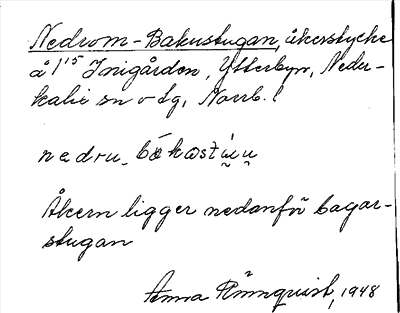 Nedrom-Bakustugan, åkerstycke
å 1¹⁵ Inigården, Ytterbyn, Neder-
kalix sn o tg, Norrb. l
nedru bǿkastúu
Åkern ligger nedanför bagar-
stugan
Anna Rönnquist, 1948